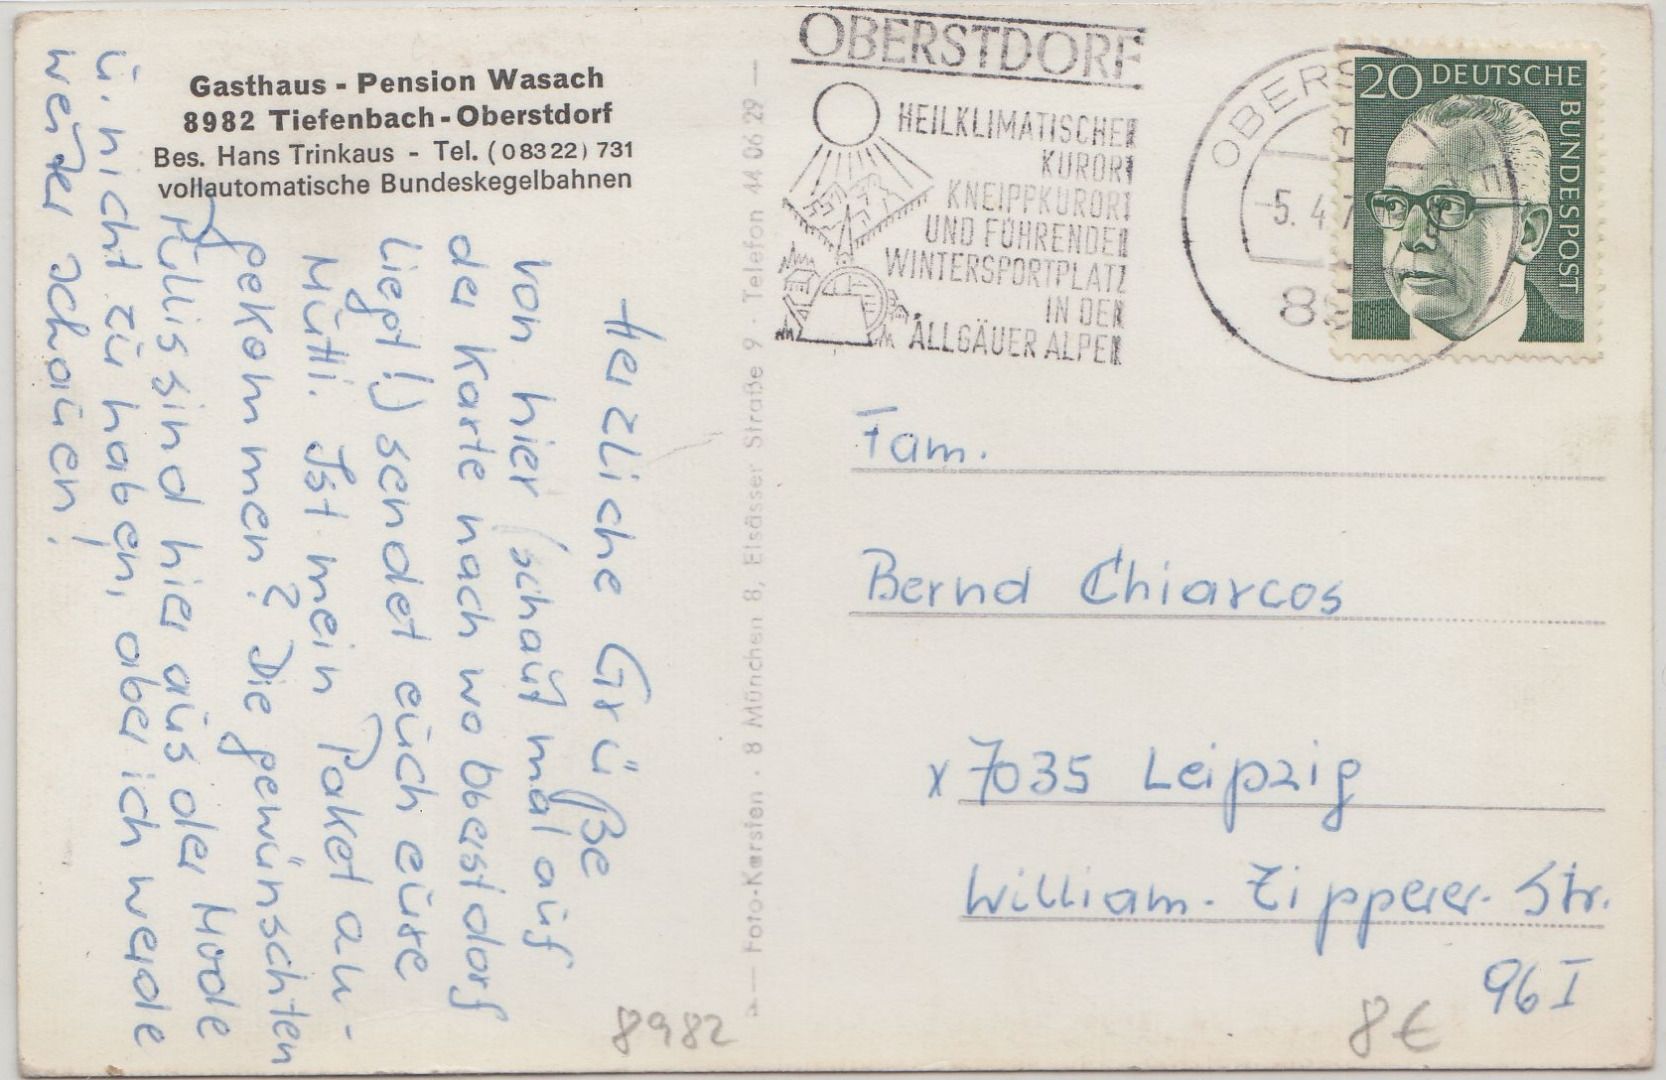 Gasthaus - Pension Wasach
8982 Tiefenbach-Oberstdorf
Bes. Hans Trinkaus - Tel. (08322) 731
vollautomatische Bundeskegelbahnen
Herzliche Grüße
von hier (schaut mal auf
der Karte nach wo Oberstdorf
liegt!) sendet euch eure
Mutti. Ist mein Paket an-
gekommen? Die gewünschten
Pullis sind hier aus der Mode
u. nicht zu haben, aber ich werde
weiter schauen!
— Foto-Kersten · 8 München 8, Elsässer Straße 9 · Telefon 44 06 29 —
OBERSTDORF
HEILKLIMATISCHER
KURORT
KNEIPPKURORT
UND FÜHRENDER
WINTERSPORTPLATZ
IN DEN
ALLGÄUER ALPEN
OBERS
5. 4. 7
89
20 DEUTSCHE
BUNDESPOST
Fam.
Bernd Chiarcos
x 7035 Leipzig
William-Zipperer-Str.
96 I
8982
8€